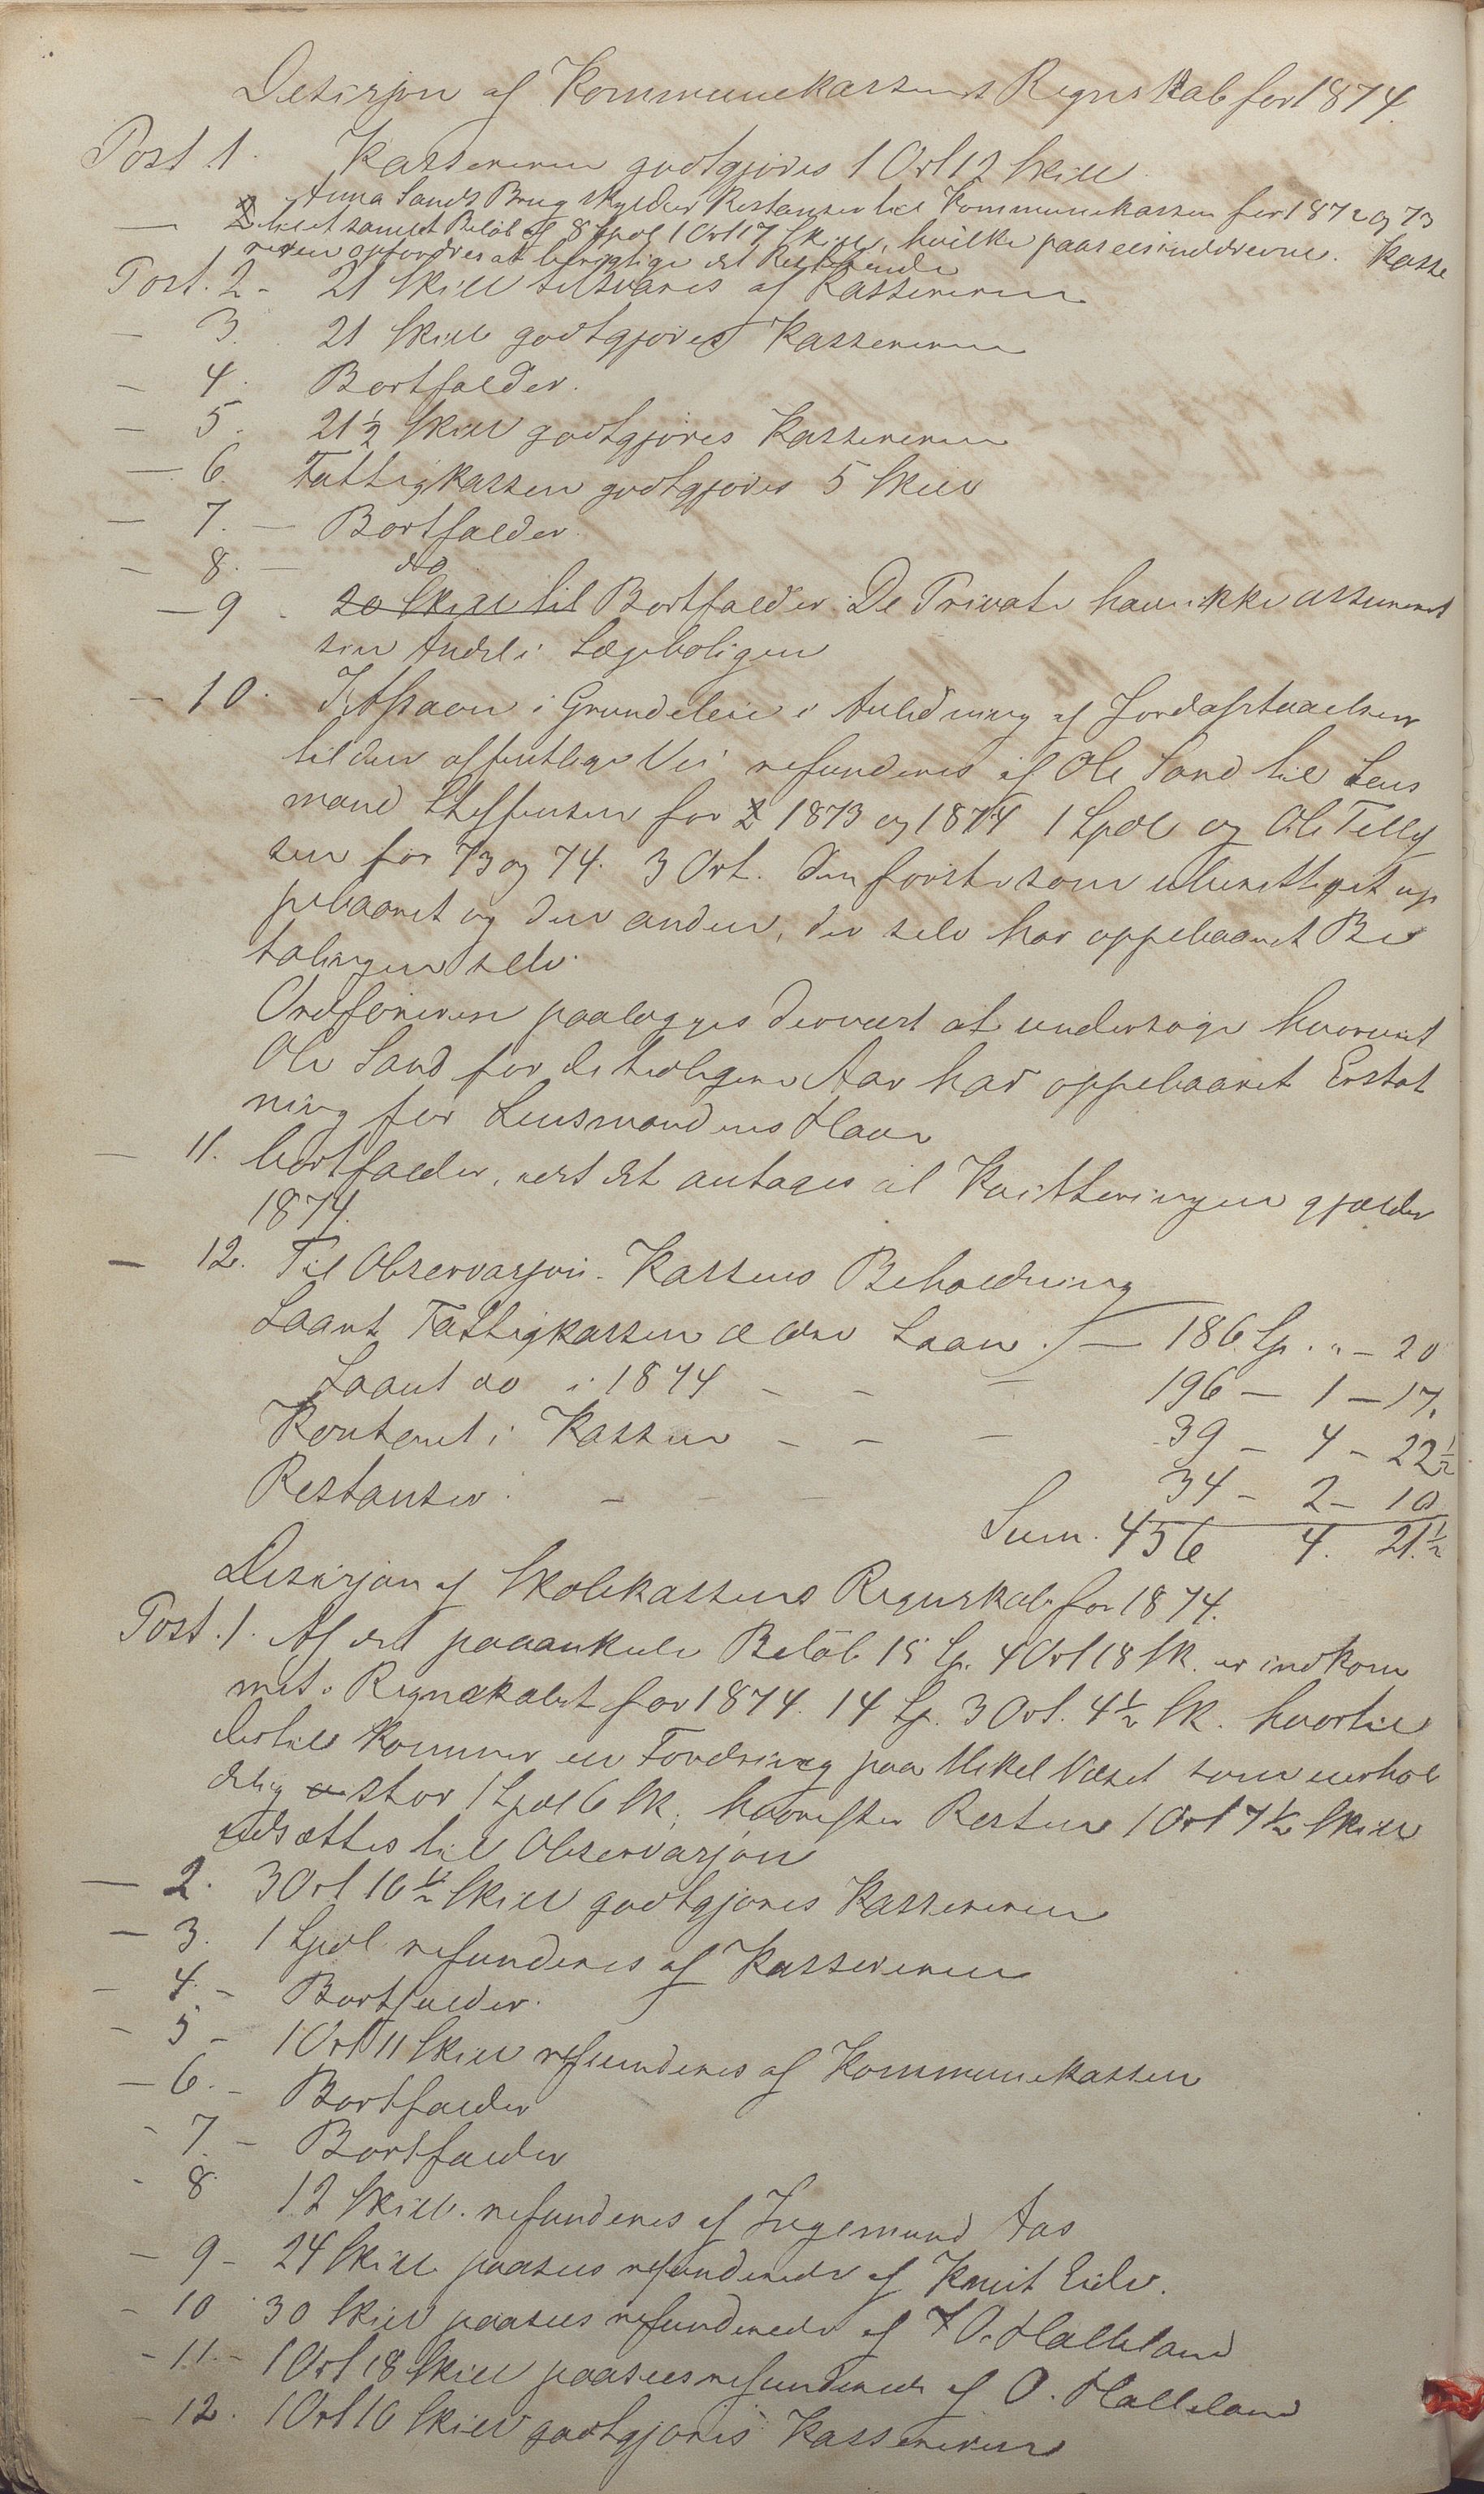 Desisjon af Kommunekassens Regnskab for 1874.
Post 1. Kassereren godtgjøres 1 Ort 12 Skill
Anna Sands Brug skylder Restanser til Kommunekassen for 1872 og 73
— 2 til et samlet Beløb af 8 Spdl 1 Ort 17 Skill, hvilke paasees inddrevne. Kasse
reren opfordres at berigtige det Resterende
Post. 2 - 21 Skill tilsvares af Kassereren
— 3. 21 Skill godtgjøres Kassereren
— 4. Bortfalder.
— 5. 21½ Skill godtgjøres Kassereren
— 6. Fattigkassen godtgjøres 5 Skill
— 7. — Bortfalder.
— 8. — do
— 9. 20 Skill til Bortfalder. De Private have ikke assureret
sin Andel i Lægeboligen
— 10. I Afsavn i Grundeleie i Anledning af Jordafstaaelsen
til den offentlige Vei refunderes af Ole Sand til Lens
mand Steffensen for 2 1873 og 1874 1 Spdl og Ole Tellef
sen for 73 og 74. 3 Ort. den første som uberettiget op
pebaaret og den anden, der selv har oppebaaret Be
talingen selv.
Ordføreren paalægges derværst at undersøge hvorvidt
Ole Sand for de tidligere Aar har oppebaaret Erstat
ning for Lensmandens Havn
— 11. bortfalder, idet det antages at Kvitteringen gjælder
1874.
— 12. Til Observasjon. Kassens Beholdning
Laant Fattigkassen ældre Laan. — 186 Sp. " — 20
Laant do i 1874 — — — 196 — 1 — 17.
Kontant i Kassen — — — 39 — 4 — 22½
Restanser. — — — 34 — 2 — 10
Sum. 456 4. 21.½
Desisjon af Skolekassens Regnskab for 1874.
Post. 1. Af det paaankede Beløb 15 Sp. 4 Ort 18 Sk. er indkom
met i Regnskabet for 1874. 14 Sp. 3 Ort. 4½ Sk. hvortil
dertil kommer en Fordring paa Mikel Våset som uerhol
delig stor 1 Spdl 6 Sk, hvorefter Resten 1 Ort 7½ Skill
udsættes til Observasjon
— 2. 3 Ort 16½ Skill godtgjøres Kassereren
— 3. 1 Spdl refunderes af Kassereren
— 4. — Bortfalder.
— 5 — 1 Ort 11 Skill refunderes af Kommunekassen
— 6. — Bortfalder
- 7. — Bortfalder
- 8. 12 Skill. refunderes af Ingemund Aas
— 9 — 24 Skill paasees refunderede af Knut Eide.
— 10 30 Skill paasees refunderede af O. Halleland
— 11. — 1 Ort 18 Skill paasees refunderede af O. Halleland
— 12. 1 Ort 16 Skill godtgjøres Kassereren